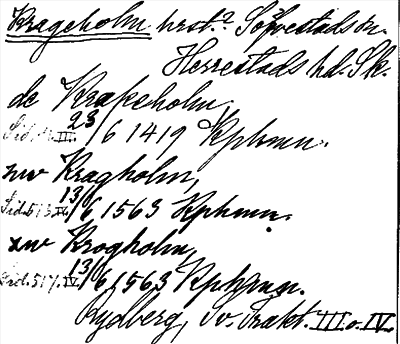 Krageholm hrst.? Sövestads sn.
Herrestads hd. Sk.
de Krakeholm,
Sid. III. 23/6 1419 Kphmn.
nw Kragholm,
Sid. 513. IV. 13/6 1563 Kphmn.
xw Krogholm,
Sid. 517. IV. 13/6 1563 Kphmn.
Rydberg, Sv. Trakt. III o. IV.